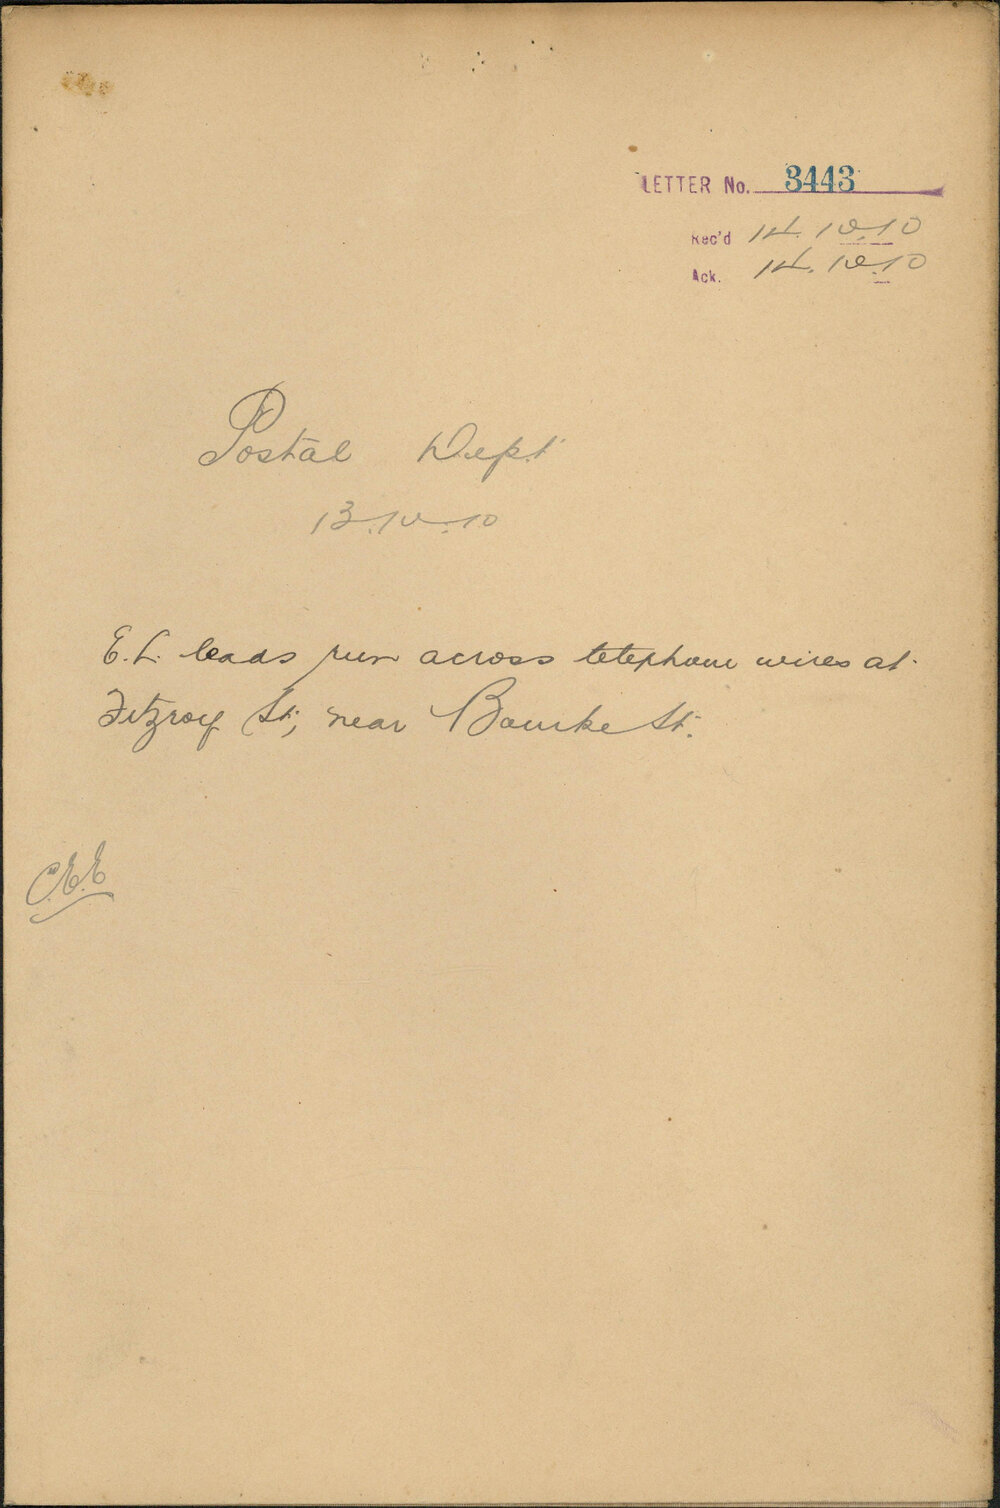 LETTER No. 3443
Rec'd 14.10.10
Ack. 14.10.10
Postal Dept
13.10.10
E.L. leads run across telephone wires at
Fitzroy St, near Bourke St.
C.E.E